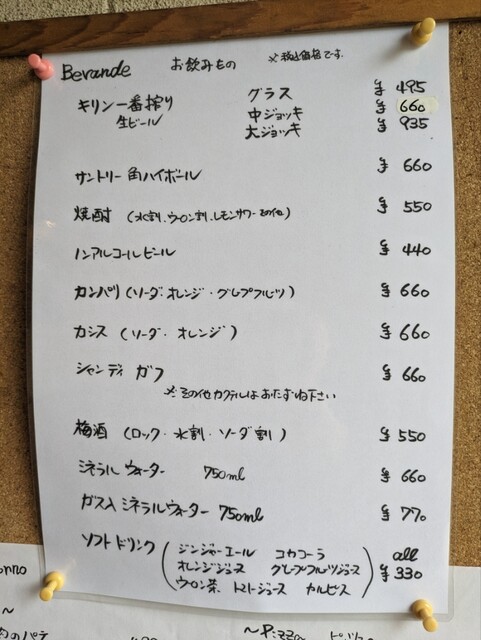 Bevande お飲みもの ※税込価格です.
キリン一番搾り グラス ¥495
生ビール 中ジョッキ ¥660
大ジョッキ ¥935
サントリー角ハイボール ¥660
焼酎 (水割、ウーロン割、レモンサワーその他) ¥550
ノンアルコールビール ¥440
カンパリ (ソーダ・オレンジ・グレープフルーツ) ¥660
カシス (ソーダ・オレンジ) ¥660
シャンディ ガフ ¥660
※その他カクテルはおたずね下さい
梅酒 (ロック・水割・ソーダ割) ¥550
ミネラル ウォーター 750ml ¥660
ガス入ミネラルウォーター 750ml ¥770
ソフトドリンク (ジンジャーエール コカコーラ all
オレンジジュース グレープフルーツジュース ¥330
ウーロン茶、トマトジュース カルピス)